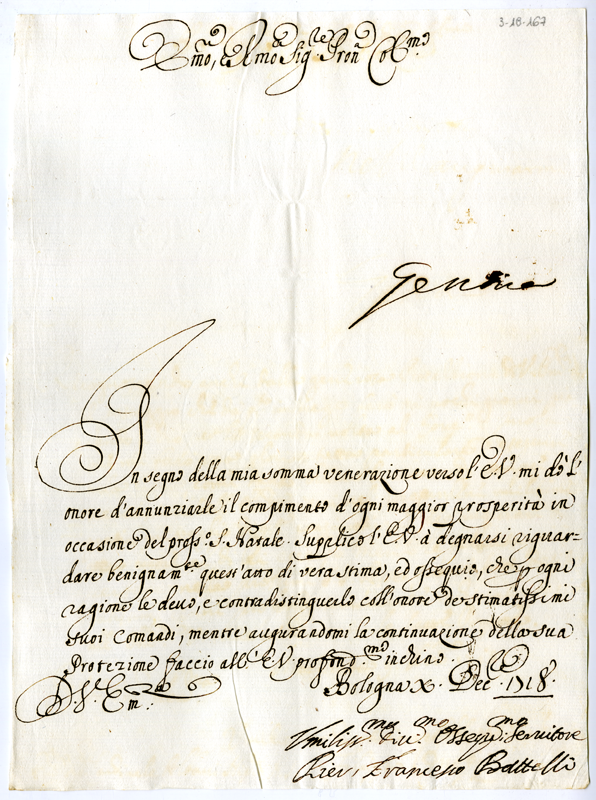 3-18-167
Emo, e Rmo Sig.re Pron Col.mo
In segno della mia somma venerazione verso l'E.V. mi dò l'
onore d'annunziarle il compimento d'ogni maggior prosperità in
occasione del pross.o S. Natale. Supplico l'E.V. à degnarsi riguar=
dare benignam.te quest'atto di vera stima, ed ossequio, che p ogni
ragione le devo, e contradistinguerlo coll'onore de stimatissimi
suoi Comandi, mentre augurandomi la continuazione della sua
Protezione faccio all'E.V. profond.mo inchino.
D. V. Em.:
Bologna X. Dec.re 1718.
Umiliss.mo Div.mo Osseqq.mo Servitore
Pier, Francesco Battelli